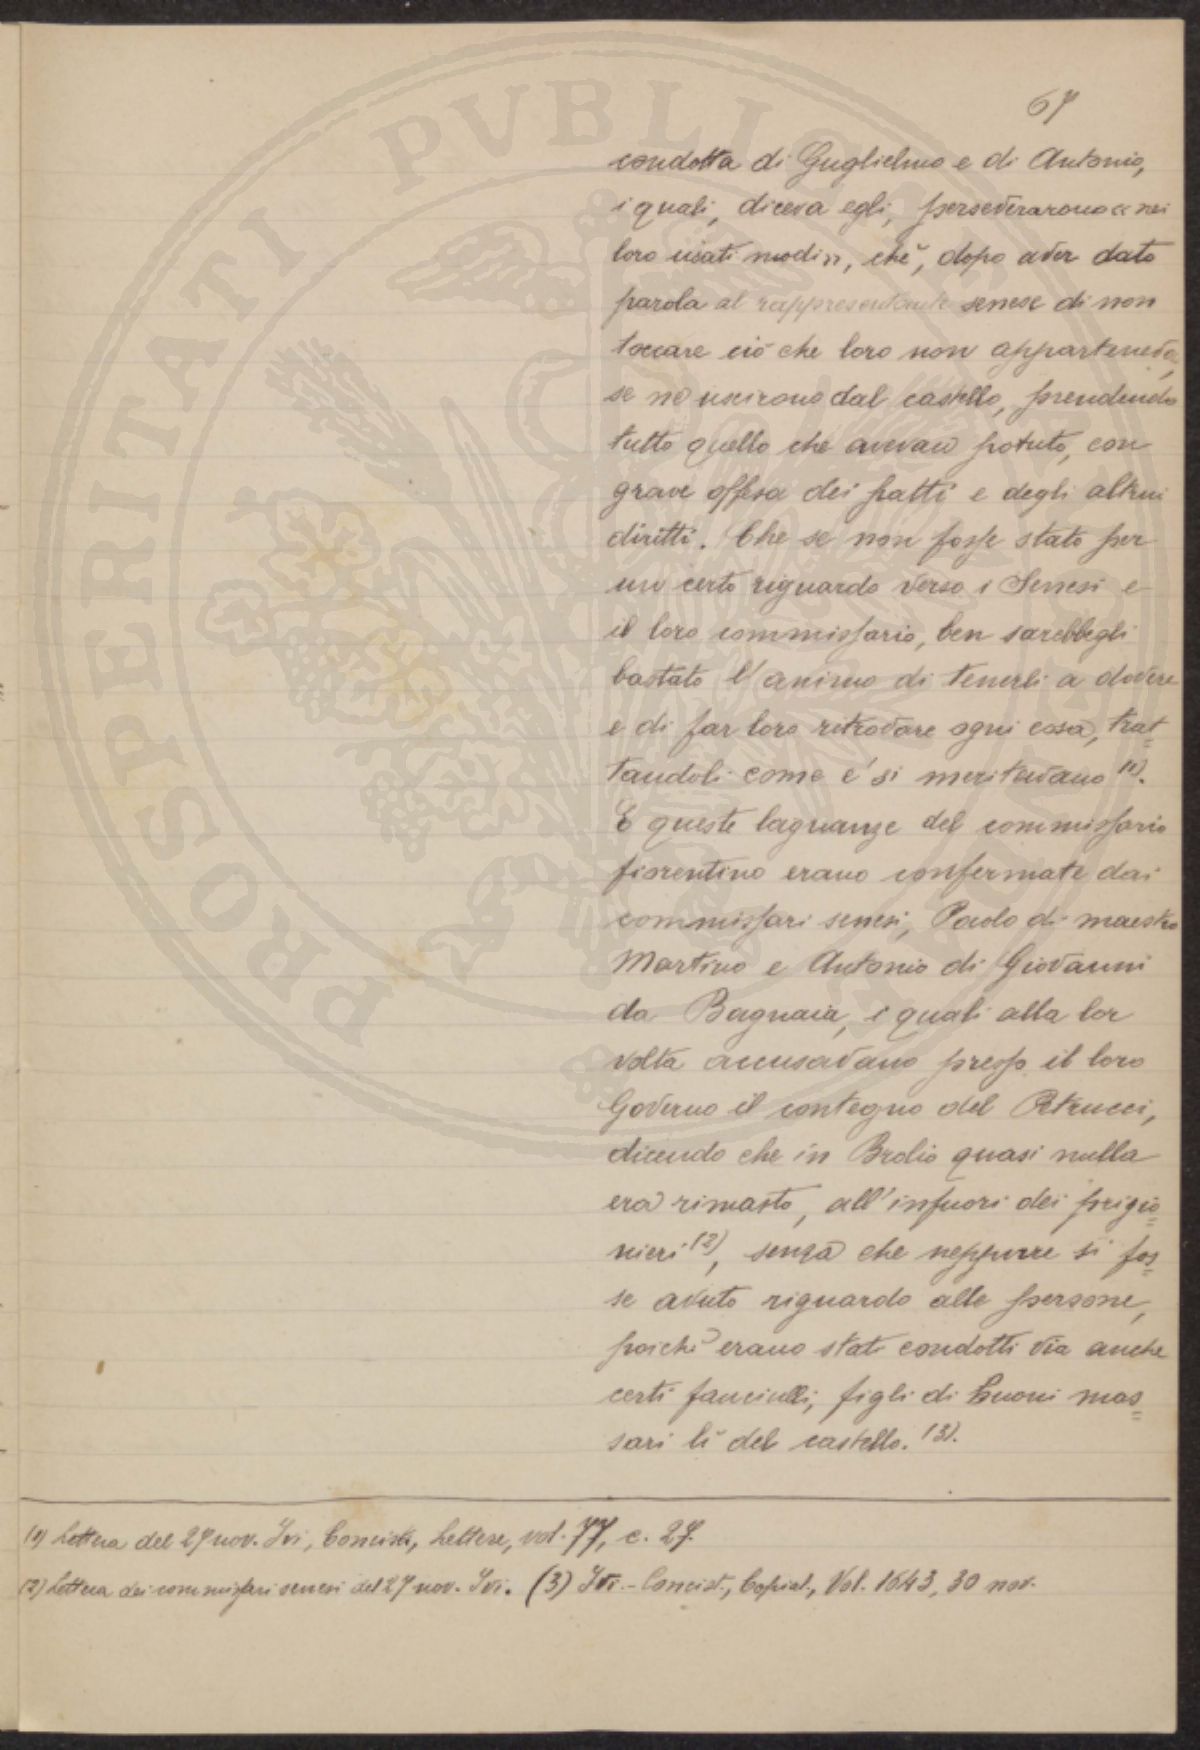 67
condotta di Guglielmo e di Antonio,
i quali, diceva egli, perseverarono « nei
loro usati modi », chè, dopo aver dato
parola al rappresentante senese di non
toccare ciò che loro non apparteneva,
se ne uscirono dal castello, prendendo
tutto quello che avevan potuto, con
grave offesa dei patti e degli altrui
diritti. Che se non fosse stato per
un certo riguardo verso i Senesi e
il loro commissario, ben sarebbegli
bastato l'animo di tenerli a dovere
e di far loro ritrovare ogni cosa, trat=
tandoli come e' si meritavano (1).
E queste lagnanze del commissario
fiorentino erano confermate dai
commissari senesi, Paolo di maestro
Martino e Antonio di Giovanni
da Bagnaia, i quali alla lor
volta accusavano presso il loro
Governo il contegno del Petrucci,
dicendo che in Brolio quasi nulla
era rimasto, all'infuori dei prigio=
nieri (2), senza che neppure si fos=
se avuto riguardo alle persone,
poichè erano stati condotti via anche
certi fanciulli, figli di buoni mas=
sari lì del castello. (3).
(1) Lettera del 27 nov. Ivi, Concist., Lettere, vol. 77, c. 27.
(2) Lettera dei commissari senesi del 27 nov. Ivi. (3) Ivi. - Concist., Copial., Vol. 1643, 30 nov.
PROSPERITATI PVBLICAE